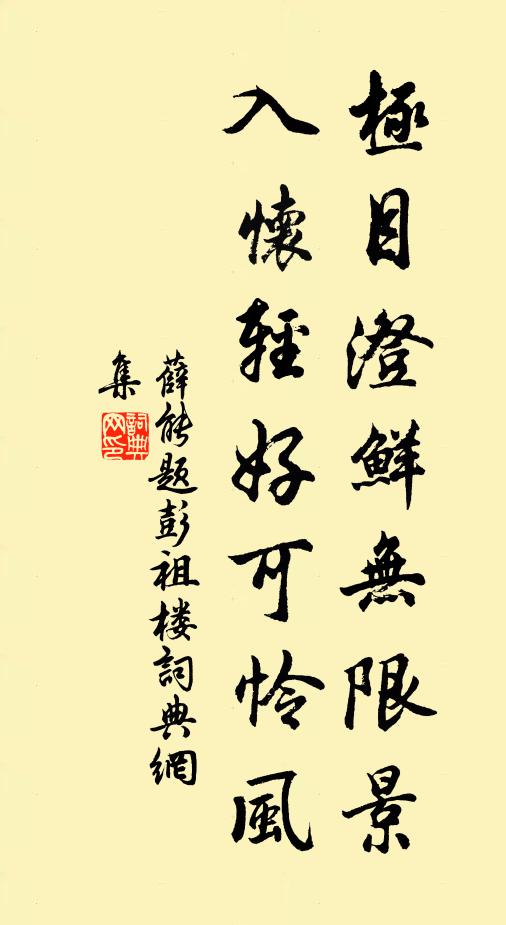 極目澄鮮無限景
入懷輕好可怜風
薛能题彭祖楼詞典網
集
詞典网印